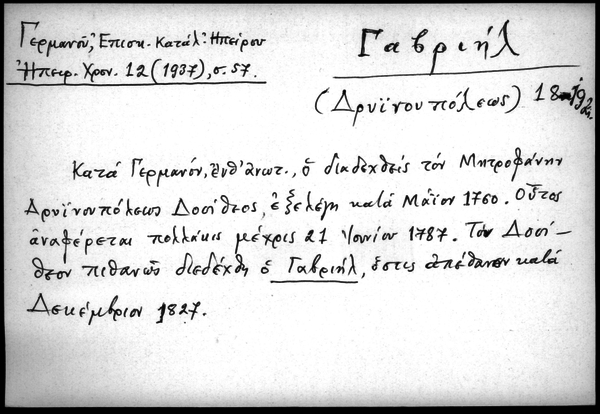 Γερμανοῦ, Ἐπισκ. Κατάλ. Ἠπείρου
Ἠπειρ. Χρον. 12 (1937), σ. 57.
Γαβριήλ
(Δρυϊνουπόλεως) 18 - 19
Κατά Γερμανόν, ἔνθ' ἀνωτ., ὁ διαδεχθείς τόν Μητροφάνην
Δρυϊνουπόλεως Δοσίθεος, ἐξελέγη κατά Μάϊον 1760. Οὗτος
ἀναφέρεται πολλάκις μέχρις 21 Ἰουνίου 1787. Τόν Δοσί-
θεον πιθανῶς διεδέχθη ὁ Γαβριήλ, ὅστις ἀπέθανεν κατά
Δεκέμβριον 1827.